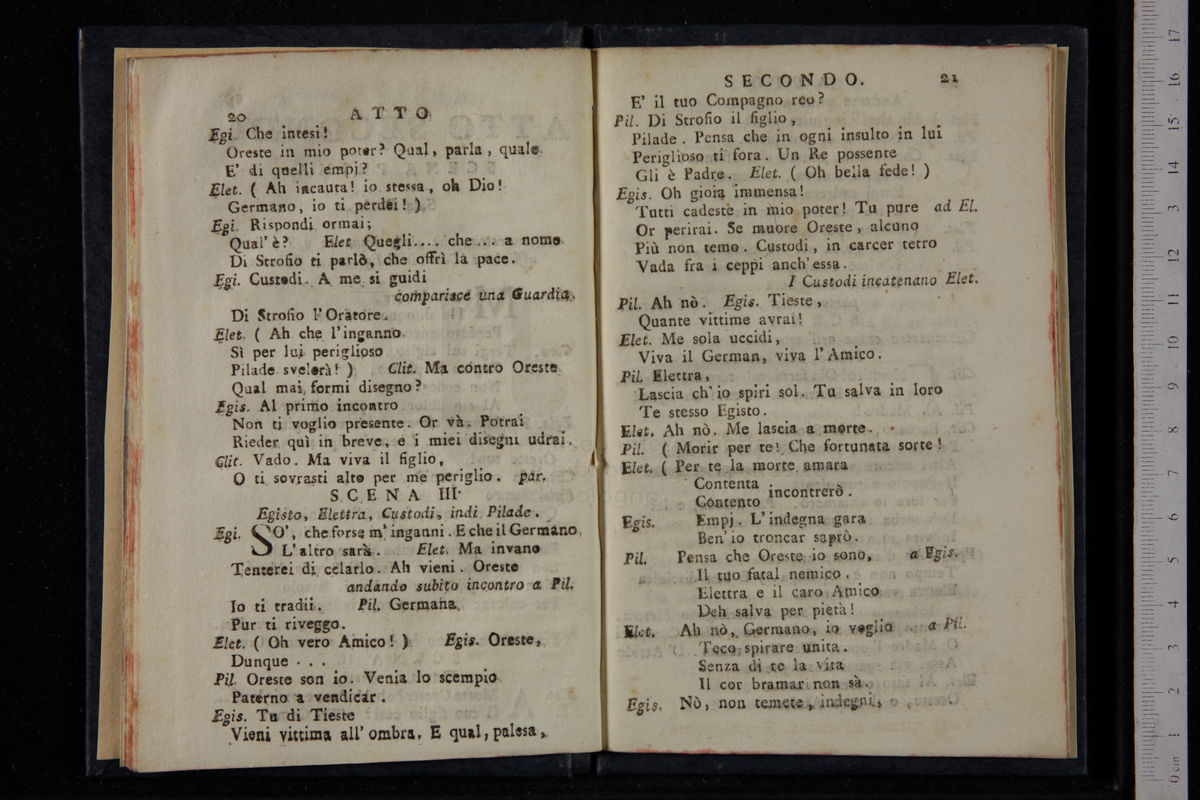 20 ATTO
Egi. Che intesi!
Oreste in mio poter? Qual, parla, quale
E' di quelli empj?
Elet. ( Ah incauta! io stessa, oh Dio!
Germano, io ti perdei! )
Egi. Rispondi ormai;
Qual' è? Elet. Quegli.... che... a nome
Di Strofio ti parlò, che offrì la pace.
Egi. Custodi. A me si guidi
comparisce una Guardia.
Di Strofio l'Oratore.
Elet. ( Ah che l'inganno
Sì per lui periglioso
Pilade svelerà! ) Clit. Ma contro Oreste
Qual mai formi disegno?
Egis. Al primo incontro
Non ti voglio presente. Or và. Potrai
Rieder quì in breve, e i miei disegni udrai.
Clit. Vado. Ma viva il figlio,
O ti sovrasti alto per me periglio. par.
SCENA III.
Egisto, Elettra, Custodi, indi Pilade.
Egi. SO', che forse m'inganni. E che il Germano
L'altro sarà. Elet. Ma invano
Tenterei di celarlo. Ah vieni. Oreste
andando subito incontro a Pil.
Io ti tradii. Pil. Germana,
Pur ti riveggo.
Elet. ( Oh vero Amico! ) Egis. Oreste,
Dunque . . .
Pil. Oreste son io. Venia lo scempio
Paterno a vendicar.
Egis. Tu di Tieste
Vieni vittima all'ombra. E qual, palesa,
SECONDO. 21
E' il tuo Compagno reo?
Pil. Di Strofio il figlio,
Pilade. Pensa che in ogni insulto in lui
Periglioso ti fora. Un Re possente
Gli è Padre. Elet. ( Oh bella fede! )
Egis. Oh gioia immensa!
Tutti cadeste in mio poter! Tu pure ad El.
Or perirai. Se muore Oreste, alcuno
Più non temo. Custodi, in carcer tetro
Vada fra i ceppi anch'essa.
I Custodi incatenano Elet.
Pil. Ah nò. Egis. Tieste,
Quante vittime avrai!
Elet. Me sola uccidi,
Viva il German, viva l'Amico.
Pil. Elettra,
Lascia ch'io spiri sol. Tu salva in loro
Te stesso Egisto.
Elet. Ah nò. Me lascia a morte.
Pil. ( Morir per te! Che fortunata sorte!
Elet. ( Per te la morte amara
Contenta
incontrerò.
Contento
Egis. Empj. L'indegna gara
Ben'io troncar saprò.
Pil. Pensa che Oreste io sono, a Egis.
Il tuo fatal nemico.
Elettra e il caro Amico
Deh salva per pietà!
Elet. Ah nò, Germano, io voglio a Pil.
Teco spirare unita.
Senza di te la vita
Il cor bramar non sà.
Egis. Nò, non temete, indegni,